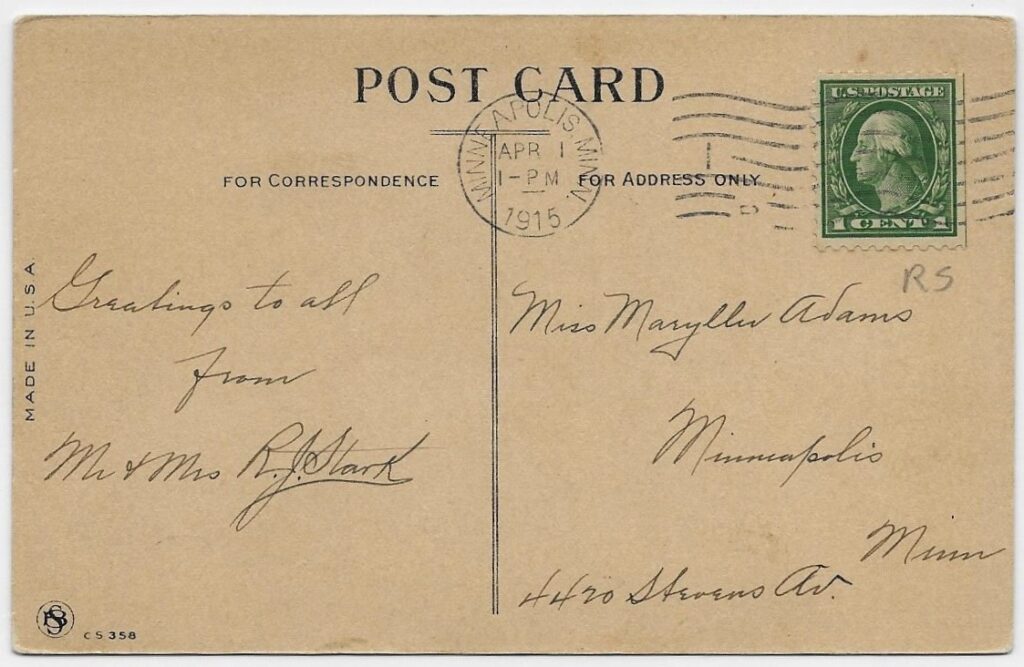 POST CARD
FOR CORRESPONDENCE
FOR ADDRESS ONLY
MINNEAPOLIS, MINN.
APR 1
1-PM
1915
U.S. POSTAGE
1 CENT 1
RS
Greatings to all
from
Mr & Mrs R.J. Stark
Miss Maryllu Adams
Minneapolis
Minn
4420 Stevens Av.
MADE IN U.S.A.
CS 358